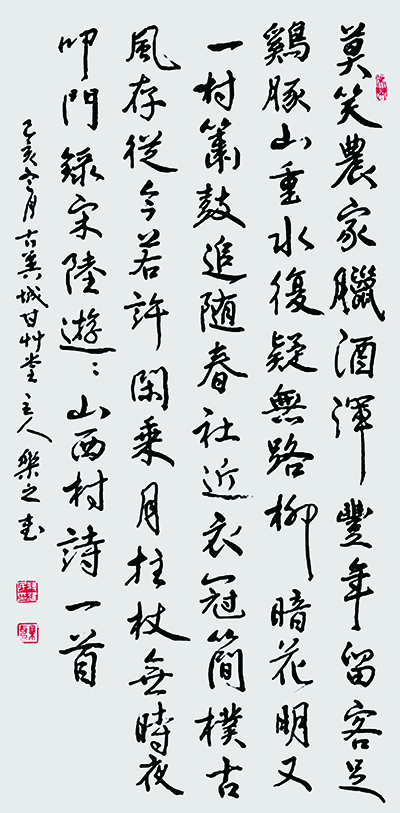 莫笑農家臘酒渾豐年留客足
鷄豚山重水復疑無路柳暗花明又
一村簫鼓追随春社近衣冠簡樸古
風存從今若許閑乘月拄杖無時夜
叩門録宋陸遊〻山西村詩一首
己亥冬月古冀城甘艸堂主人樂之書